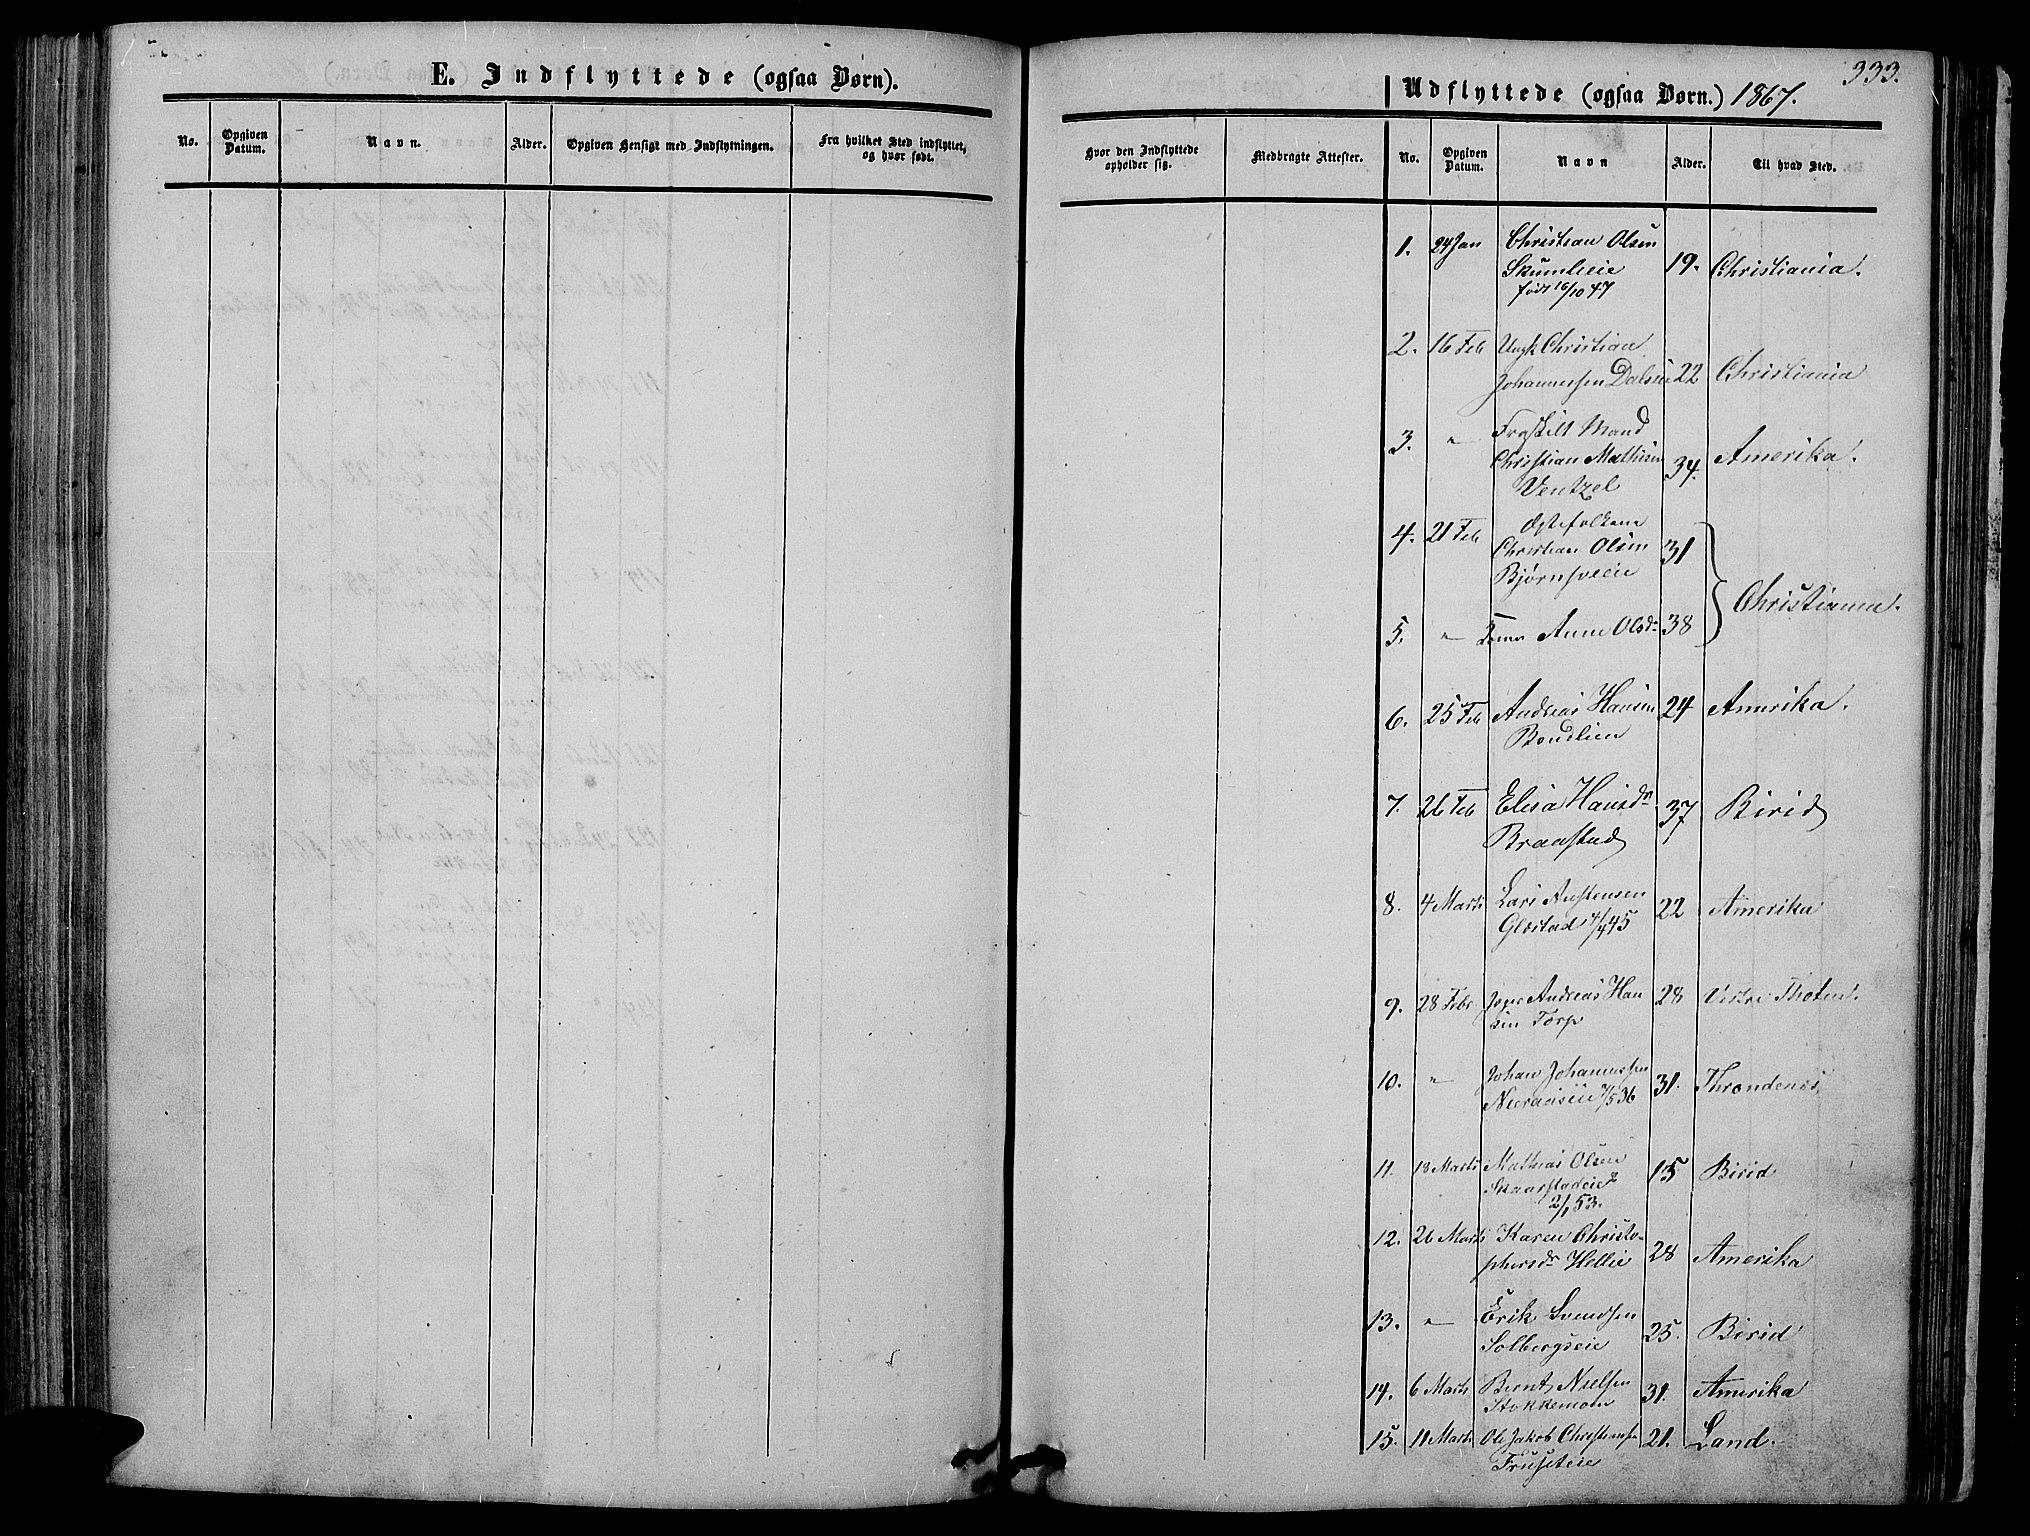 E. Indflyttede (ogsaa Børn).
No.
Opgiven Datum.
Navn.
Alder.
Opgiven Hensigt med Indflytningen.
Fra hvilket Sted indflyttet, og hvor født.
333.
Udflyttede (ogsaa Børn.) 1867.
Hvor den Indflyttede opholder sig.
Medbragte Attester.
No.
Opgiven Datum.
Navn
Alder.
Til hvad Sted.
1. 24 Jan Christian Olsen
Skumlieie 19. Christiania.
født 16/10 47
2. 16 Feb Ungk Christian
Johannessen Dalseie 22 Christiania
3. " Fraskilt Mand
Christian Mathisen 34. Amerika.
Ventzel
4. 21 Feb Ægtefolkene
Christian Olsen 31
Bjørnsveie
Christiania.
5. " Anne Olsdr 38
6. 25 Feb Andreas Hansen 24 Amerika.
Bondlien
7. 26 Feb Elisa Hansdr 37 Birid
Braastad
8. 4 Marts Lars Austensen 22 Amerika
Gløstad 4/4 45
9. 28 Febr Andreas Han 28 Vestre Thoten.
sen Torp
10. " Johan Johannessen 31. Throndenes
11. 18 Marts Mathias Olsen 15 Birid
Skaarstadeie
2/1 53.
12. 26 Marts Karen Christo-
phersdr Hellie 28 Amerika
13. " Erik Svendsen 25. Birid
Solbergseie
14. 6 Marts Bernt Nielsen 31. Amerika
Stokkemoen
15. 11 Marts Ole Jakob Christense 21. Land.